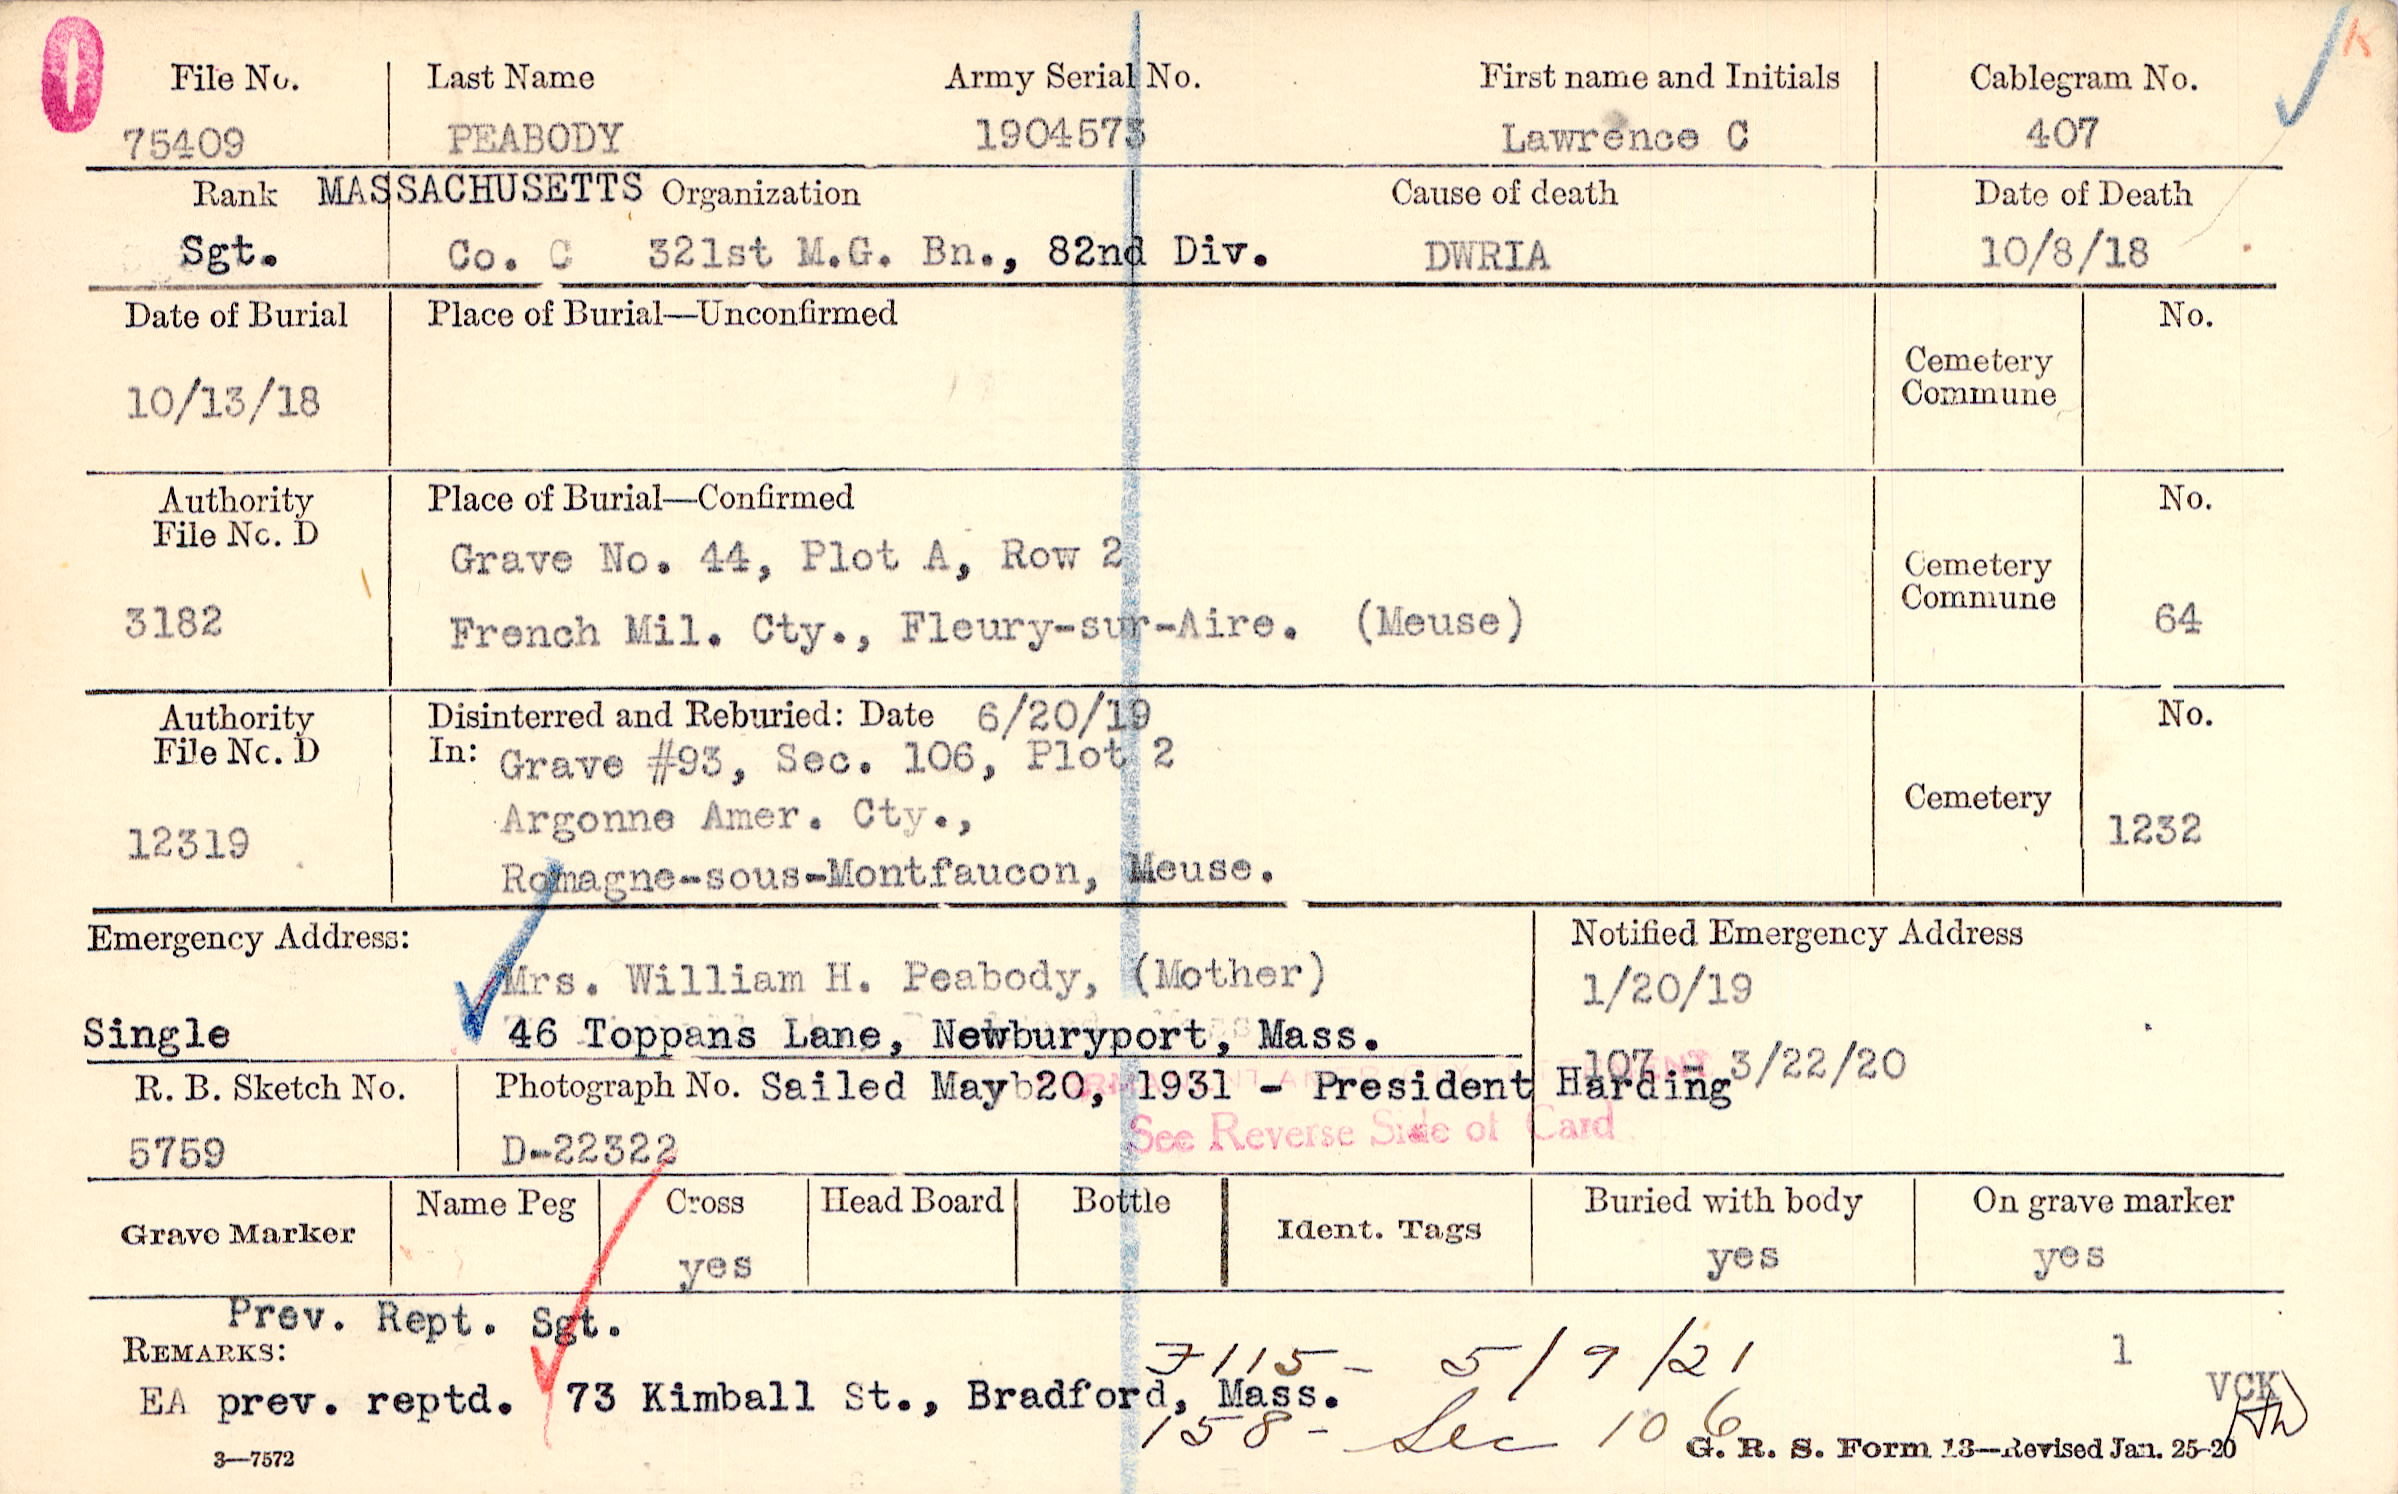 File No. Last Name Army Serial No. First name and Initials Cablegram No. K
75409 PEABODY 1904573 Lawrence C 407
Rank MASSACHUSETTS Organization Cause of death Date of Death
Sgt. Co. C 321st M.G. Bn., 82nd Div. DWRIA 10/8/18
Date of Burial Place of Burial—Unconfirmed No.
Cemetery
Commune
10/13/18
Authority Place of Burial—Confirmed No.
File No. D
Grave No. 44, Plot A, Row 2 Cemetery
Commune
3182 French Mil. Cty., Fleury-sur-Aire. (Meuse) 64
Authority Disinterred and Reburied: Date 6/20/19 No.
File No. D In: Grave #93, Sec. 106, Plot 2
Cemetery
12319 Argonne Amer. Cty., 1232
Romagne-sous-Montfaucon, Meuse.
Emergency Address: Notified Emergency Address
Mrs. William H. Peabody, (Mother) 1/20/19
Single 46 Toppans Lane, Newburyport, Mass.
107 - 3/22/20
R. B. Sketch No. Photograph No. Sailed May 20, 1931 - President Harding
See Reverse Side of Card
5759 D-22322
Grave Marker Name Peg Cross Head Board Bottle Ident. Tags Buried with body On grave marker
yes yes yes
Prev. Rept. Sgt.
REMARKS: 7115- 5/9/21 1
EA prev. reptd. 73 Kimball St., Bradford, Mass. VCK
158- Sec 106
3—7572 G. R. S. Form 13—Revised Jan. 25-20